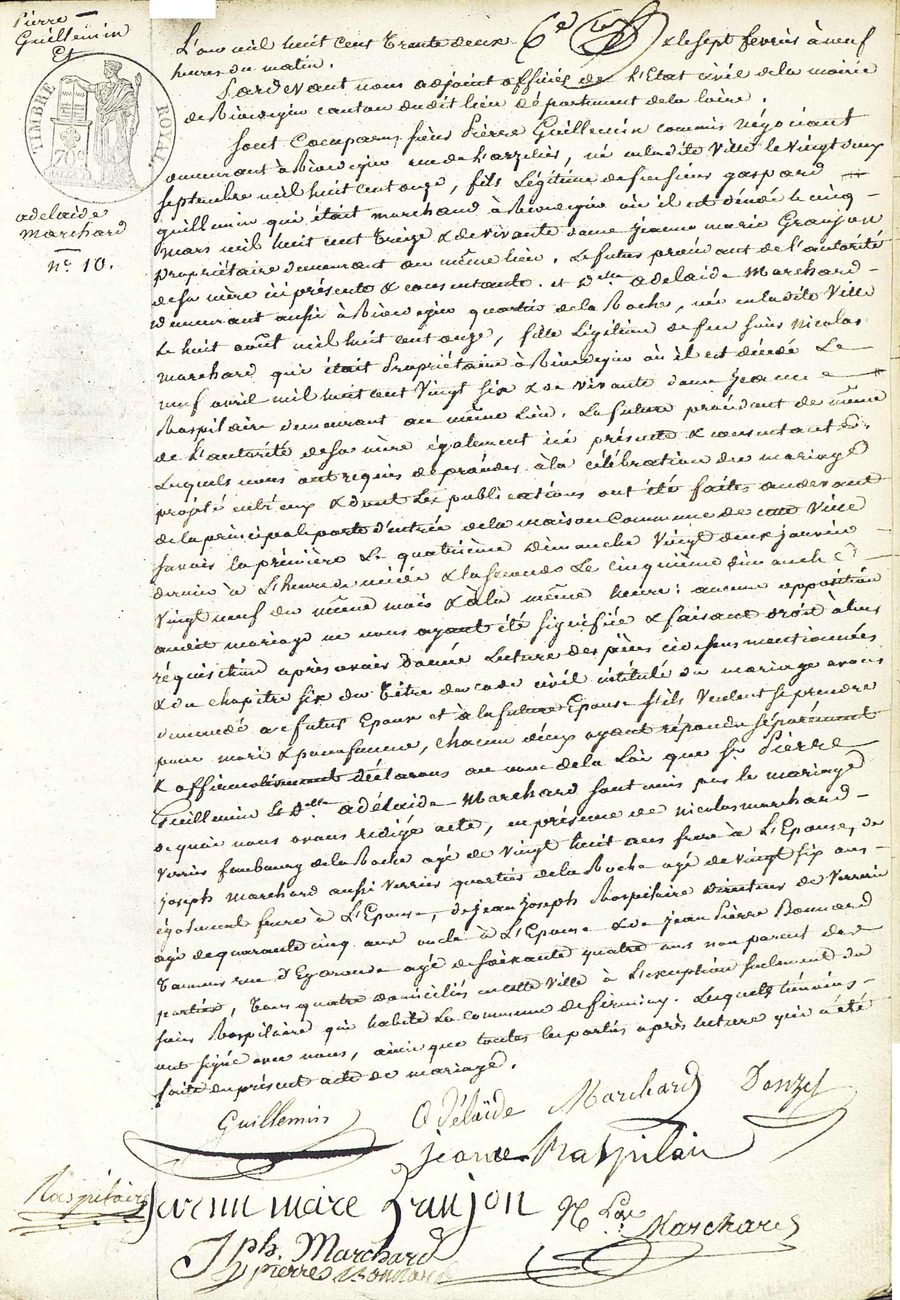 Pierre
Guillemin
Et
TIMBRE ROYAL
70c
adelaide
Marchard
n° 10.
L'an mil huit cent trente deux & le sept fevrier à neuf
heures du matin.
Pardevant nous adjoint officier de l'Etat civil de la mairie
de Rivedegier canton dudit lieu département de la loire,
Sont Comparus, sieur Pierre Guillemin commis négociant
demeurant à Rivedegier, né en ladite Ville le vingt deux
septembre mil huit cent onze, fils Légitime de feu sieur gaspard
guillemin qui était marchand à Rivedegier où il est décédé le cinq
mars mil huit cent treize & de vivante dame jeanne marie Granjon
propriétaire demeurant au même lieu. Le futur procédant de l'autorité
de sa mère ici présente & consentante. et Dlle adelaide Marchard
demeurant aussi à Rivedegier quartier de la Roche, née en ladite Ville
Le huit août mil huit cent onze, fille Légitime de feu sieur Nicolas
marchard qui était propriétaire à Rivedegier où il est décédé Le
neuf avril mil huit cent vingt six & de vivante dame jeanne
Raspilaire demeurant au même Lieu. La future procédant de même
de l'autorité de sa mère également ici présente & consentante.
Lesquels nous ont requis de procéder à la célébration du mariage
projeté entr'eux & dont les publications ont été faites au devant
de la principale porte d'entrée de la maison Commune de cette Ville
savoir la première Le quatrième dimanche vingt deux janvier
dernier à L'heure de midi & la seconde Le cinquième dimanche
vingt neuf du même mois & à la même heure: aucune opposition
audit mariage ne nous ayant été signifiée & faisant droit à leur
réquisition après avoir donné Lecture des pièces ci dessus mentionnées
& du chapitre six du titre du code civil intitulé du mariage avons
demandé au futur Epoux et à la future Epouse s'ils Veulent se prendre
pour mari & pour femme, chacun d'eux ayant répondu séparément
& affirmativement déclarons au nom de la Loi que Sr Pierre
Guillemin & Dlle adélaide Marchard sont unis par le mariage
de quoi nous avons rédigé acte, en présence de nicolas marchard
verrier faubourg de la Roche agé de vingt huit ans frère à L'Epouse, de
joseph marchard aussi verrier quartier de la Roche agé de vingt six ans
également frère à L'Epouse, de jean joseph Raspilaire Directeur de Verrerie
agé de quarante cinq ans oncle à L'Epouse & de jean Pierre Bonnard
rue d'Egarande agé de soixante quatre ans non parent des
parties, tous quatre domiciliés en cette Ville à L'exception seulement du
sieur Raspilaire qui habite La commune de firminy. Lesquels témoins
ont signé avec nous, ainsi que toutes les parties après lecture qui a été
faite du présent acte de mariage.
Guillemin Adélaïde Marchard Donzel
jeanne Raspilair
Raspilaire jeanne marie Granjon Nlas Marchard
Jph. Marchard
pierre Bonnard